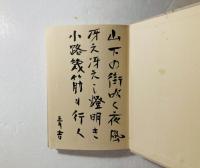 山下の街吹く夜風
冴え冴えと燈明き
小路幾筋も行く